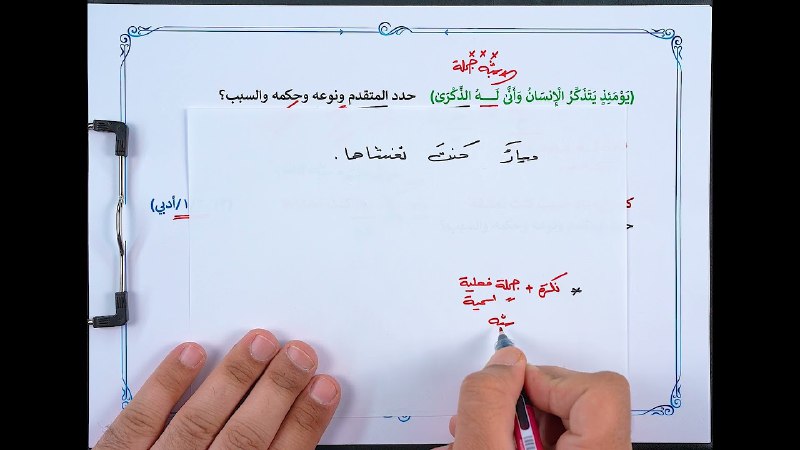 شبه جملة
﴿يَوْمَئِذٍ يَتَذَكَّرُ الْإِنسَانُ وَأَنَّىٰ لَـــهُ الذِّكْرَىٰ﴾ حدد المتقدم ونوعه وحكمه والسبب؟
ديارٌ كنتَ تغشاها.
/أدبي)
* نكرة + جملة فعلية
〃 اسمية
شبه